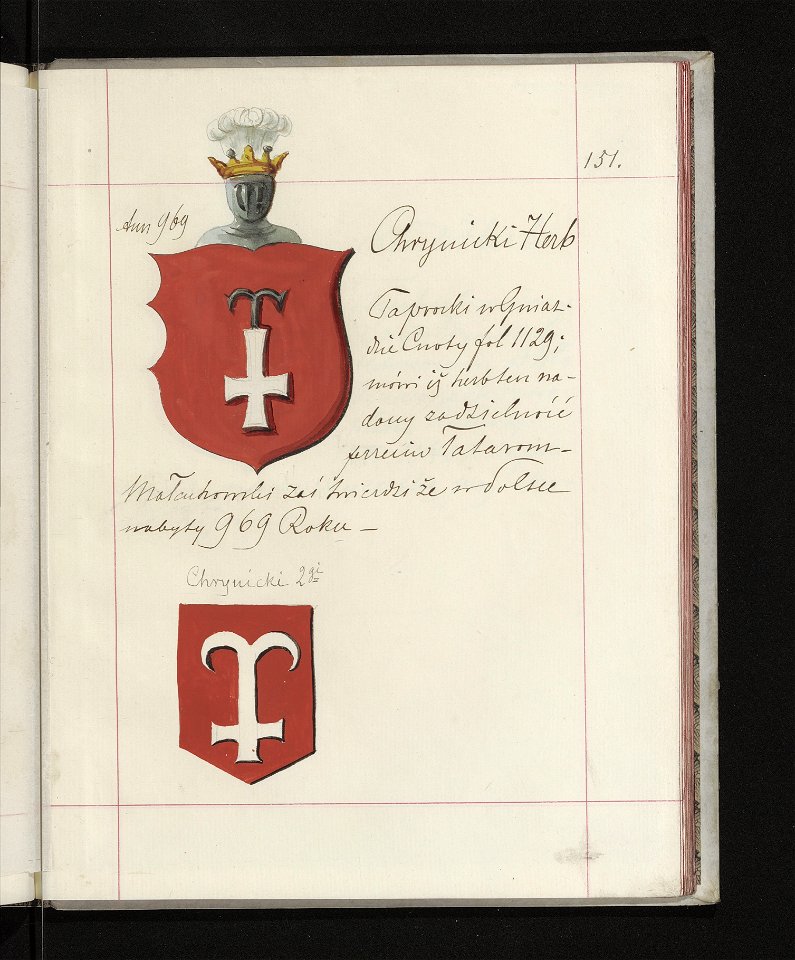 151.
Ann 969
Chrynicki Herb
Paprocki w Gniaz-
dzie Cnoty fol 1129;
mówi iż herb ten na-
dany za dzielność
przeciw Tatarom –
Małachowski zaś twierdzi że w Polsce
nabyty 969 Roku –
Chrynicki 2gi